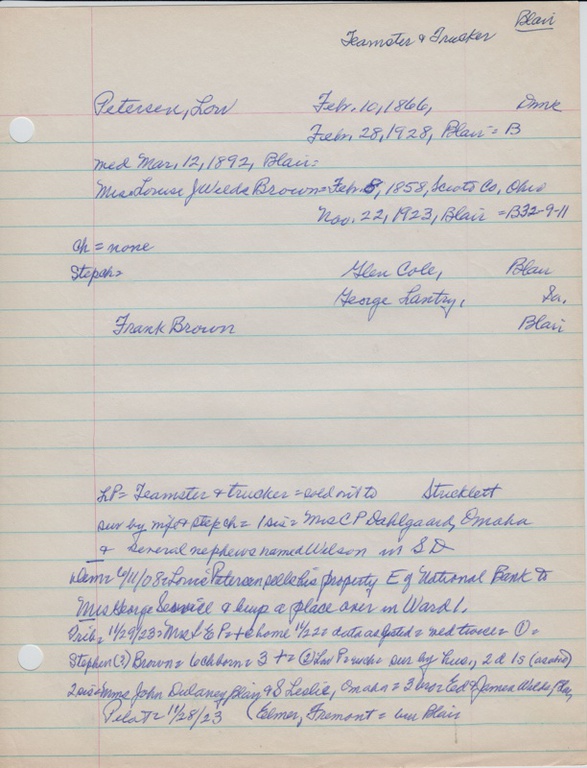 Blair
Teamster & Trucker
Petersen, Lou Febr. 10, 1866, Dmk
Febr. 28, 1928, Blair = B
med Mar. 12, 1892, Blair =
Mrs Louise J Wilds Brown = Febr 8, 1858, Sciota Co, Ohio
Nov. 22, 1923, Blair = B32-9-11
Ch = none
Stepch =
Glen Cole, Blair
George Lantry, Ia.
Frank Brown Blair
LP = Teamster & trucker = sold out to Stricklett
sur by wife & step ch = 1 sis = Mrs C P Dahlgaard, Omaha
& several nephews named Wilson in S D
Dem = 6/11/08 = Louie Petersen sells his property E of National Bank to
Mrs George & buys a place over in Ward 1.
Trib = 11/29/23 = Mrs L E P = + @ home 11/22 = data as listed = wed twice = ① =
Stephen (?) Brown = 6 ch born = 3 + = ② Lou P = = sur by hus, 2 d 1 s (as card)
2 sis = Mmes John Dulaney, Blair & S Leslie, Omaha = 3 bro = Ed & James Wilds, Blair,
Pilot = 11/28/23 (Elmer, Fremont = bur Blair